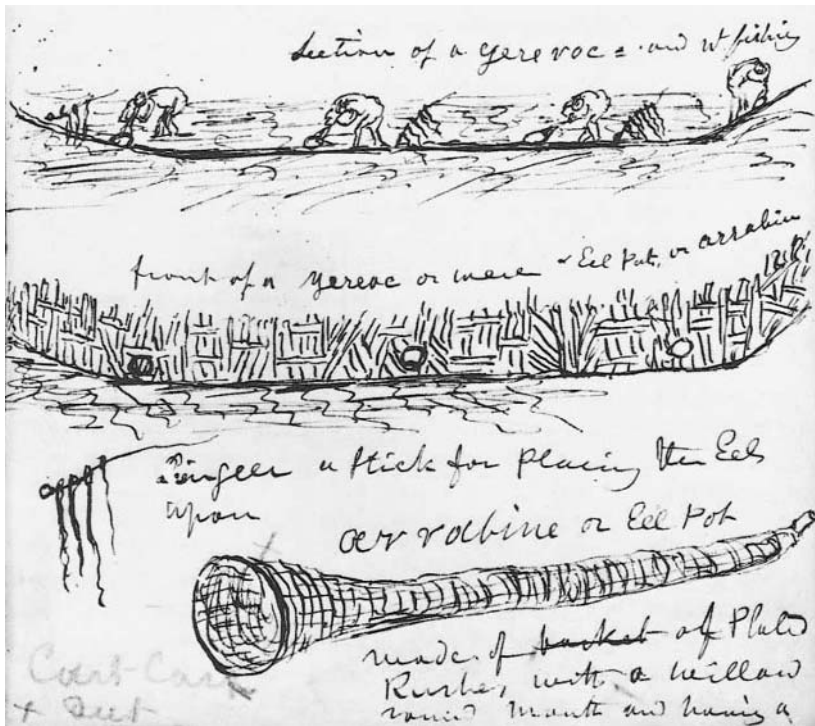 Section of a yereroc = and W fishing
front of a yeroec or weir & Eel Pot, or arrabine
Lingeer a stick for placing the Eels
upon
arrabine or Eel Pot
made of basket of Plated
Rushes with a willow
round mouth and having a